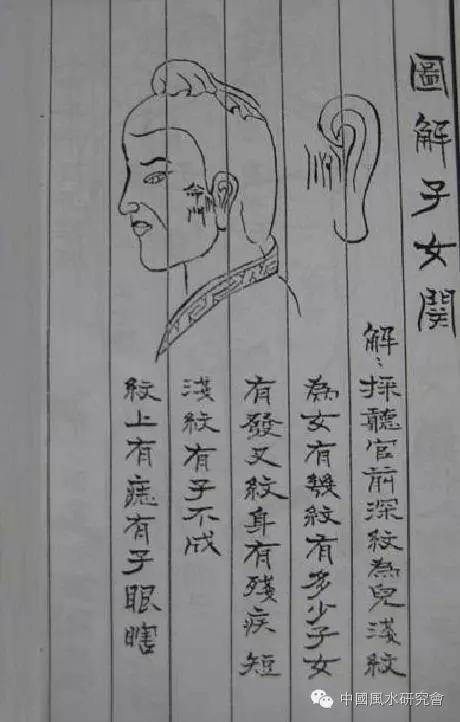 圖解子女関
解：採聽官前深紋為兒淺紋
為女有幾紋有多少子女
有發叉紋身有殘疾短
淺紋有子不成
紋上有痣有子眼瞎
命門
中國風水研究會